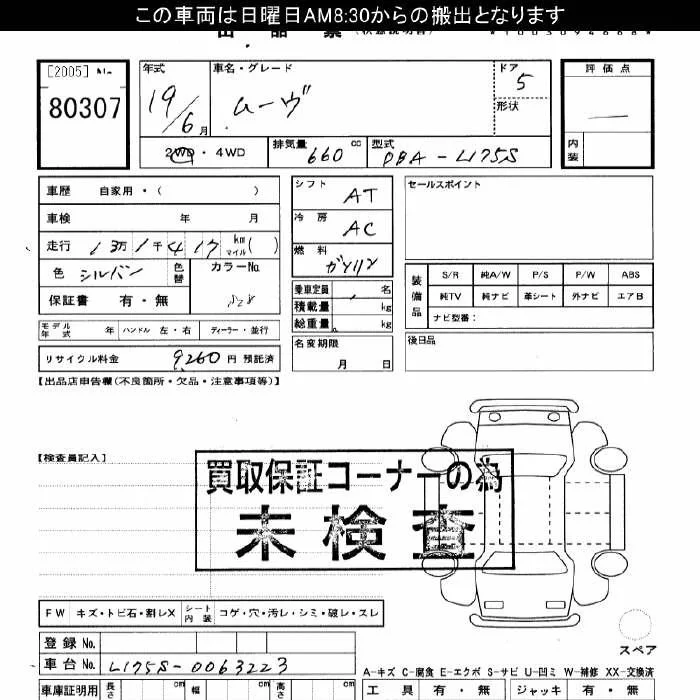 この車両は日曜日AM8:30からの搬出となります
[2005] No.
80307
年式 19/6月
車名・グレード ムーヴ
ドア 5
形状
評価点 —
内装
2WD・4WD
排気量 660 cc
型式 DBA-L175S
車歴 自家用・( )
車検 年 月
走行 13万1千417 km マイル ( )
色 シルバー 色替 カラーNo.
保証書 有・無
モデル年式 年 ハンドル 左・右 ディーラー・並行
リサイクル料金 9,260 円 預託済
シフト AT
冷房 AC
燃料 ガソリン
乗車定員 名
積載量 kg
総重量 kg
名変期限 月 日
セールスポイント
装備品
S/R 純A/W P/S P/W ABS
純TV 純ナビ 革シート 外ナビ エアB
ナビ型番:
後日品
【出品店申告欄(不良箇所・欠品・注意事項等)】
【検査員記入】
買取保証コーナーの為
未検査
FW キズ・トビ石・割レX シート内装 コゲ・穴・汚レ・シミ・破レ・スレ
スペア
登録No.
車台No. L175S-0063223
A-キズ C-腐食 E-エクボ S-サビ U-凹ミ W-補修 XX-交換済
車庫証明用 長さ cm 幅 cm 高さ cm
工具 有・無 ジャッキ 有・無